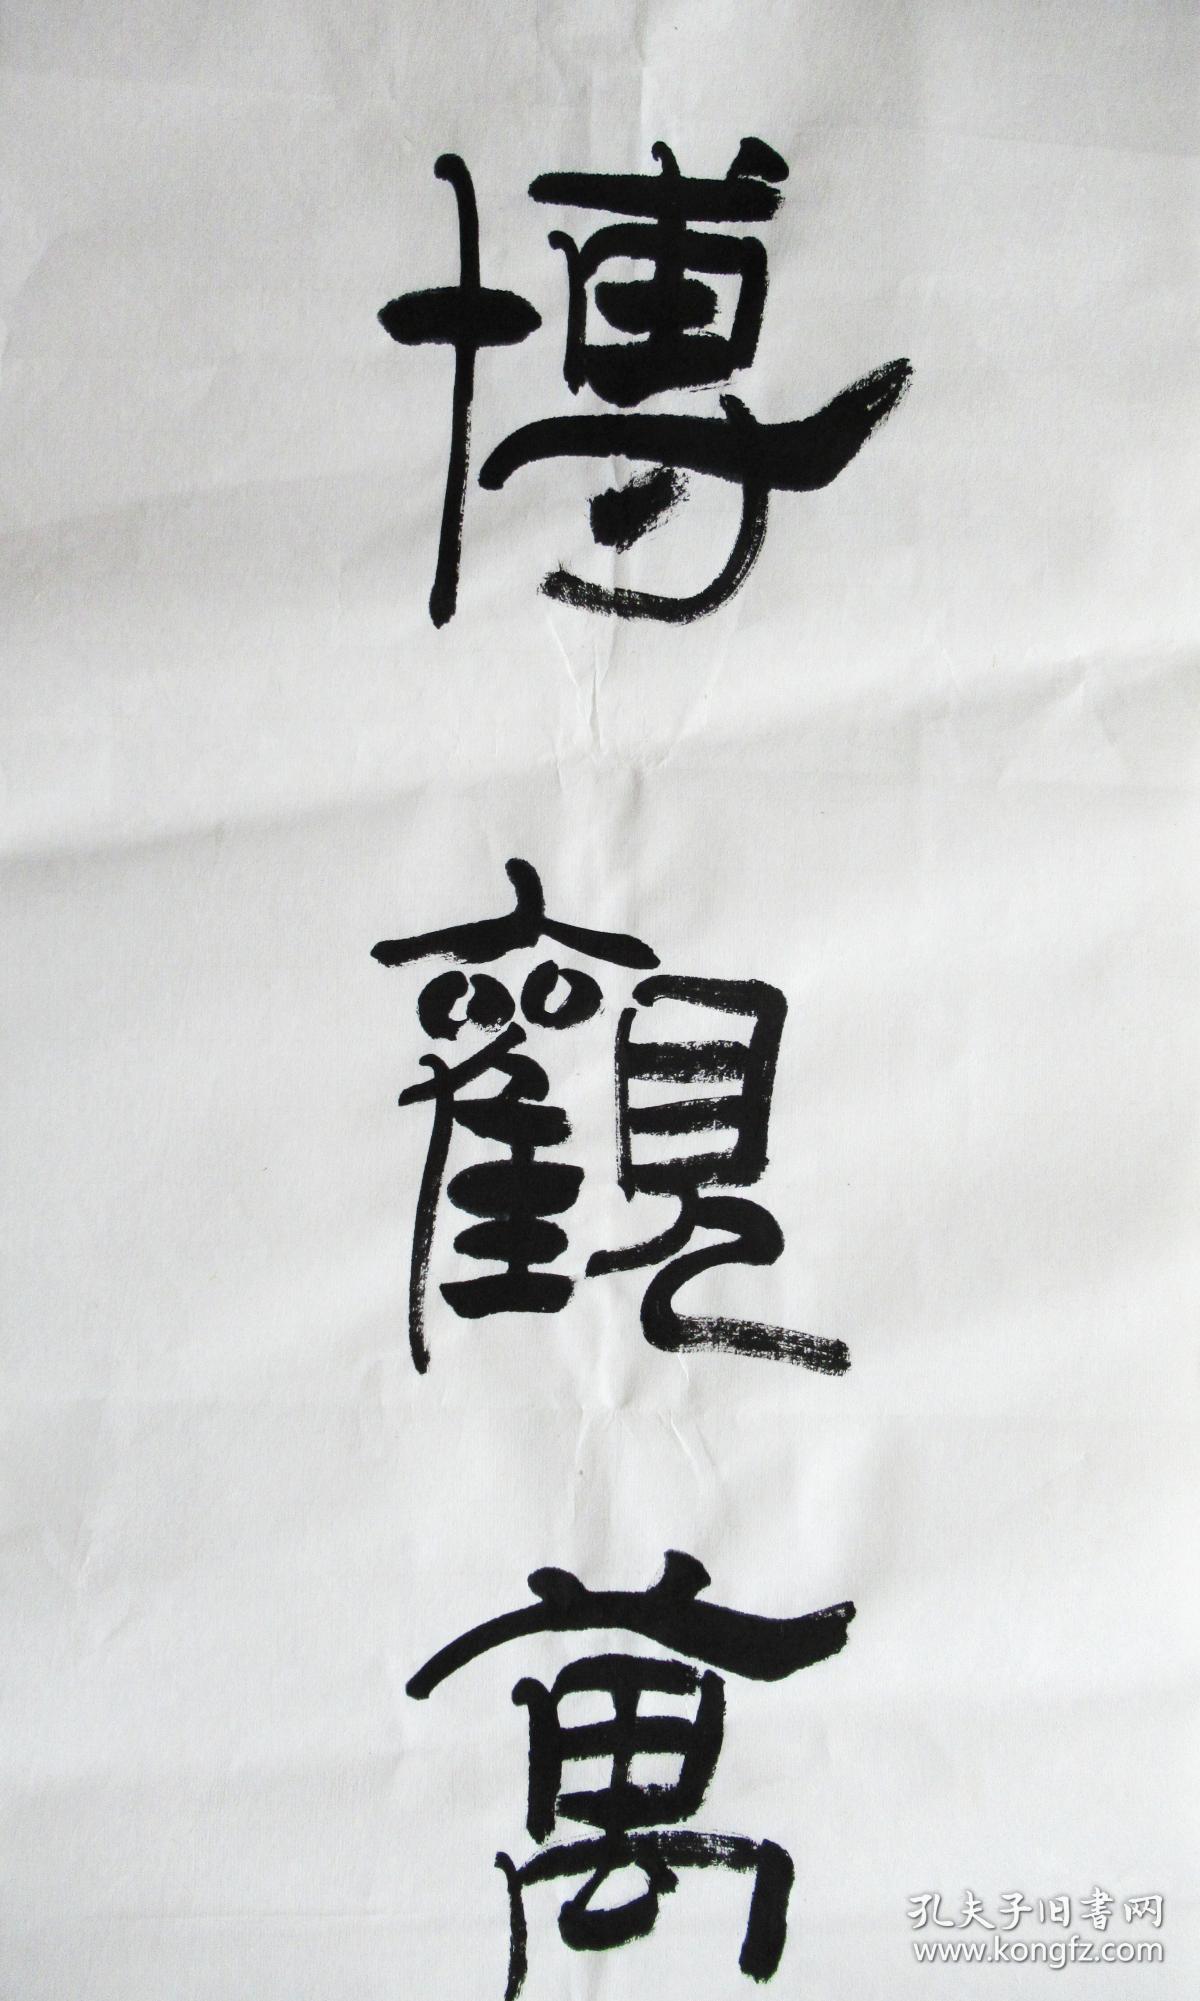 博觀萬
孔夫子旧書网
www.kongfz.com